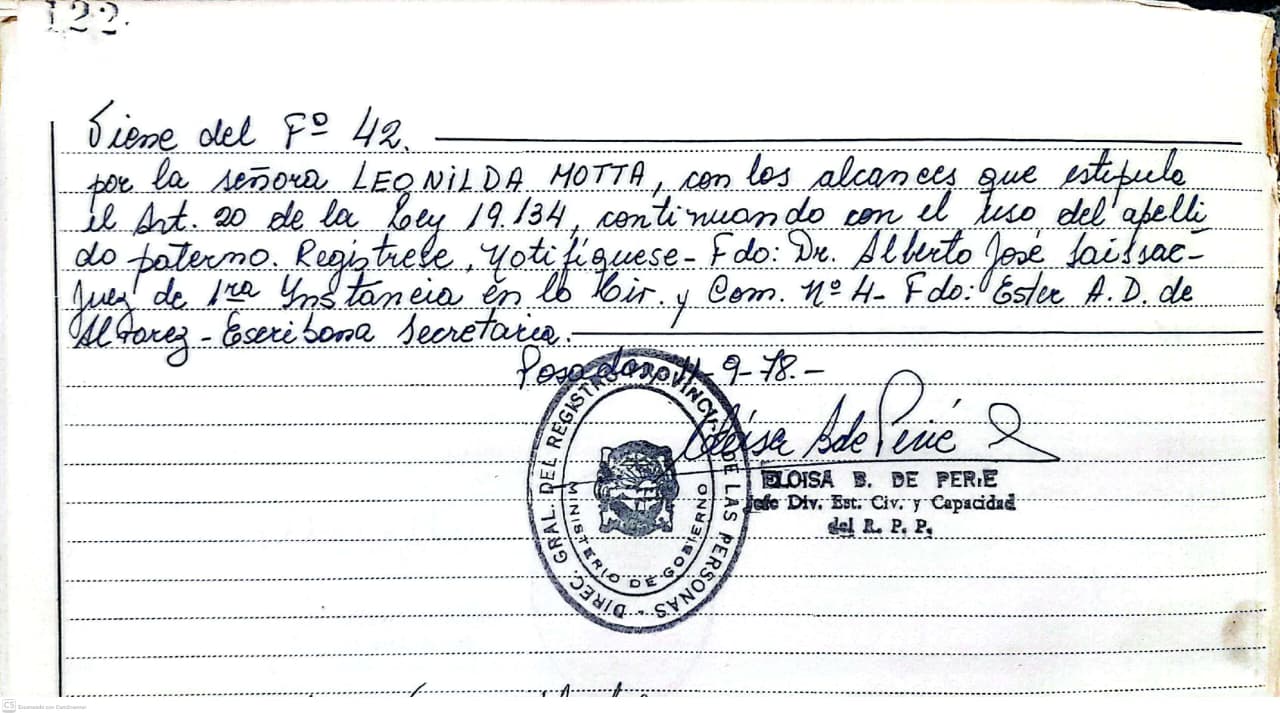 122.
Viene del Fº 42.
por la señora LEONILDA MOTTA, con los alcances que estipula
el Art. 20 de la Ley 19.134, continuando con el uso del apelli
do paterno. Regístrese, Notifíquese - Fdo: Dr. Alberto José Saissac-
Juez de 1ra Ynstancia en lo Civ. y Com. Nº 4- Fdo: Ester A. D. de
Alvarez - Escribana Secretaria.
Posadas, 11-9-78.-
DIREC. GRAL. DEL REGISTRO PROVINCIAL DE LAS PERSONAS
MINISTERIO DE GOBIERNO
ELOISA B. DE PERIE
Jefe Div. Est. Civ. y Capacidad
del R. P. P.
CS Escaneado con CamScanner